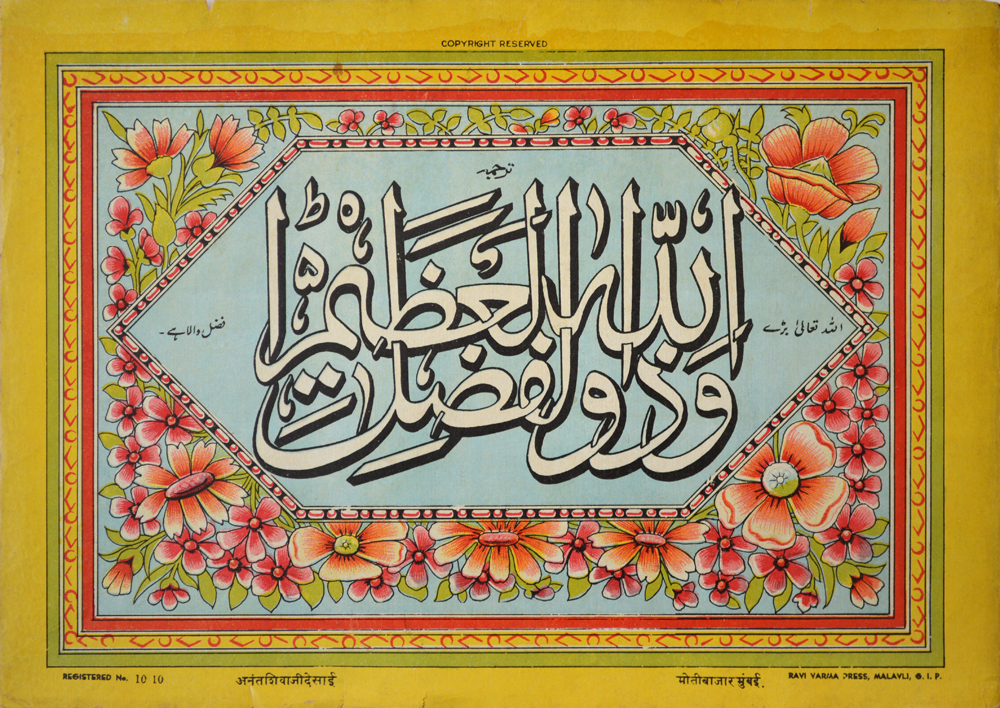 COPYRIGHT RESERVED
ترجمہ
والله ذو الفضل العظيم
اللہ تعالیٰ بڑے
فضل والا ہے۔
REGISTERED No. 10 10
अनंतशिवाजीदेसाई
मोतीबाजार मुंबई.
RAVI VARMA PRESS, MALAVLI, G. I. P.